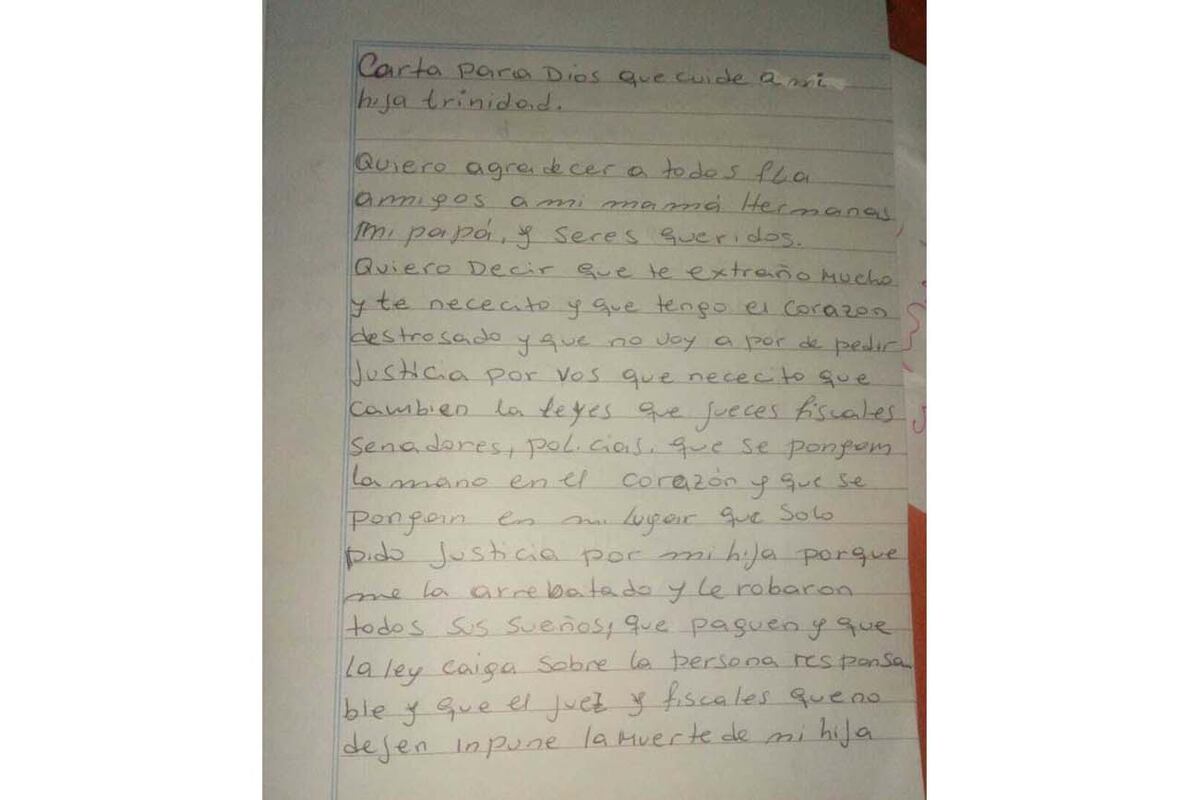 Carta para Dios que cuide a mi
hija trinidad.
Quiero agradecer a todos
amigos a mi mamá Hermanas
mi papá, y seres queridos.
Quiero Decir que te extraño mucho
y te nececito y que tengo el corazon
destrosado y que no voy a por de pedir
Justicia por vos que nececito que
cambien la leyes que jueces fiscales
senadores, policias, que se pongam
la mano en el corazón y que se
pongan en mi lugar que solo
pido Justicia por mi hija porque
me la arrebatado y le robaron
todos sus sueños, que paguen y que
la ley caiga sobre la persona responsa
ble y que el juez y fiscales que no
dejen inpune la muerte de mi hija